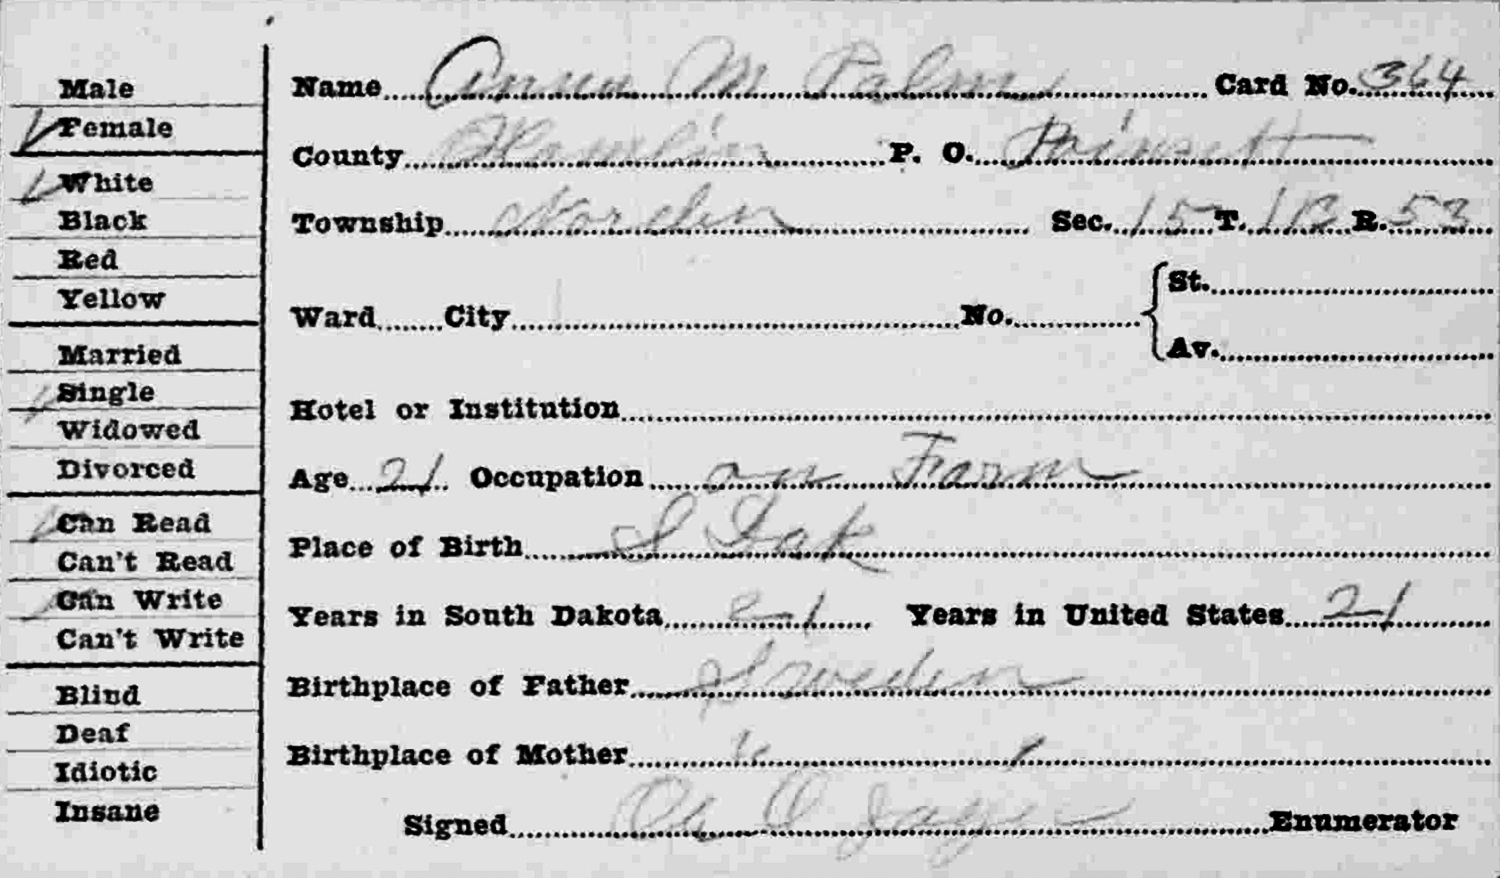 Male
Female
White
Black
Red
Yellow
Married
Single
Widowed
Divorced
Can Read
Can't Read
Can Write
Can't Write
Blind
Deaf
Idiotic
Insane
Name Anna M Palm Card No. 364
County Hamlin P. O. Poinsett
Township Norden Sec. 15 T. 113 R. 53
Ward City No. St.
Av.
Hotel or Institution
Age 21 Occupation on Farm
Place of Birth S Dak
Years in South Dakota 21 Years in United States 21
Birthplace of Father Sweden
Birthplace of Mother "
Signed O Enumerator